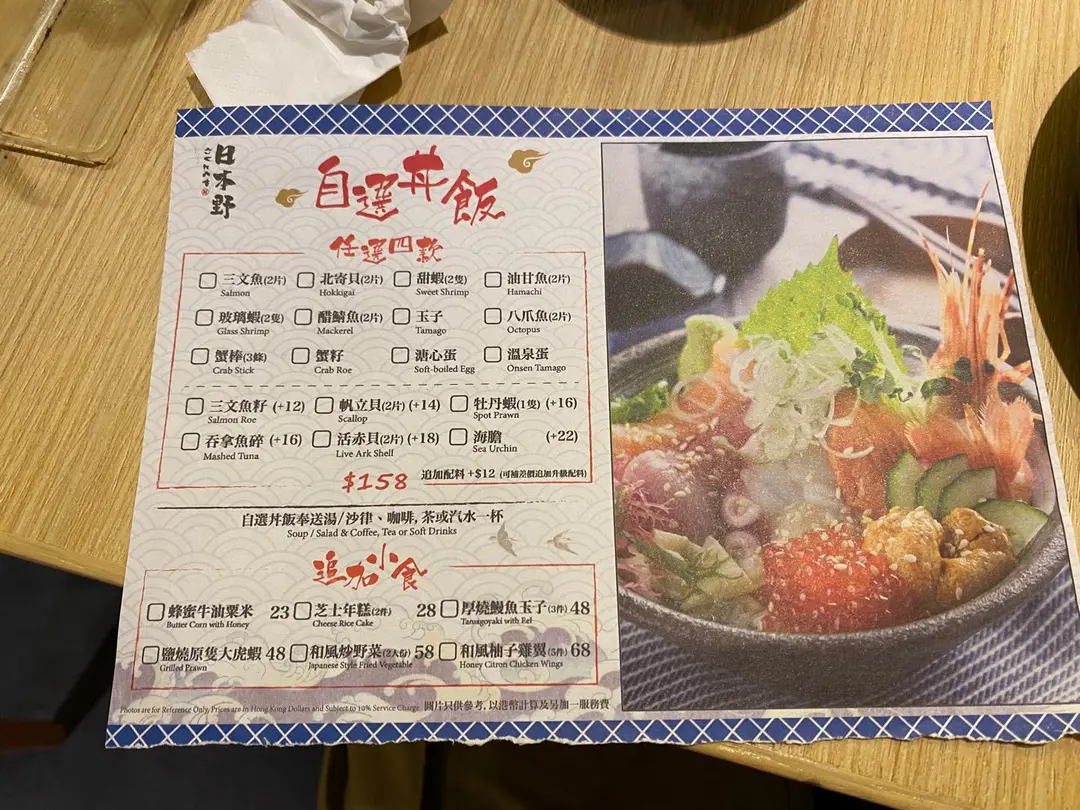 日本野
自選丼飯
任選四款
三文魚(2片) 北寄貝(2片) 甜蝦(2隻) 油甘魚(2片)
Salmon Hokkigai Sweet Shrimp Hamachi
玻璃蝦(2隻) 醋鯖魚(2片) 玉子 八爪魚(2片)
Glass Shrimp Mackerel Tamago Octopus
蟹棒(3條) 蟹籽 溏心蛋 溫泉蛋
Crab Stick Crab Roe Soft-boiled Egg Onsen Tamago
三文魚籽 (+12) 帆立貝(2片) (+14) 牡丹蝦(1隻) (+16)
Salmon Roe Scallop Spot Prawn
吞拿魚碎 (+16) 活赤貝(2片) (+18) 海膽 (+22)
Mashed Tuna Live Ark Shell Sea Urchin
$158 追加配料 +$12 (可補差價追加升級配料)
自選丼飯奉送湯/沙律、咖啡, 茶或汽水一杯
Soup / Salad & Coffee, Tea or Soft Drinks
追加小食
蜂蜜牛油粟米 23 芝士年糕(2件) 28 厚燒鰻魚玉子(3件) 48
Butter Corn with Honey Cheese Rice Cake Tamagoyaki with Eel
鹽燒原隻大虎蝦 48 和風炒野菜(2人份) 58 和風柚子雞翼(5件) 68
Grilled Prawn Japanese Style Fried Vegetable Honey Citron Chicken Wings
Photos are for Reference Only, Prices are in Hong Kong Dollars and Subject to 10% Service Charge. 圖片只供參考, 以港幣計算及另加一服務費